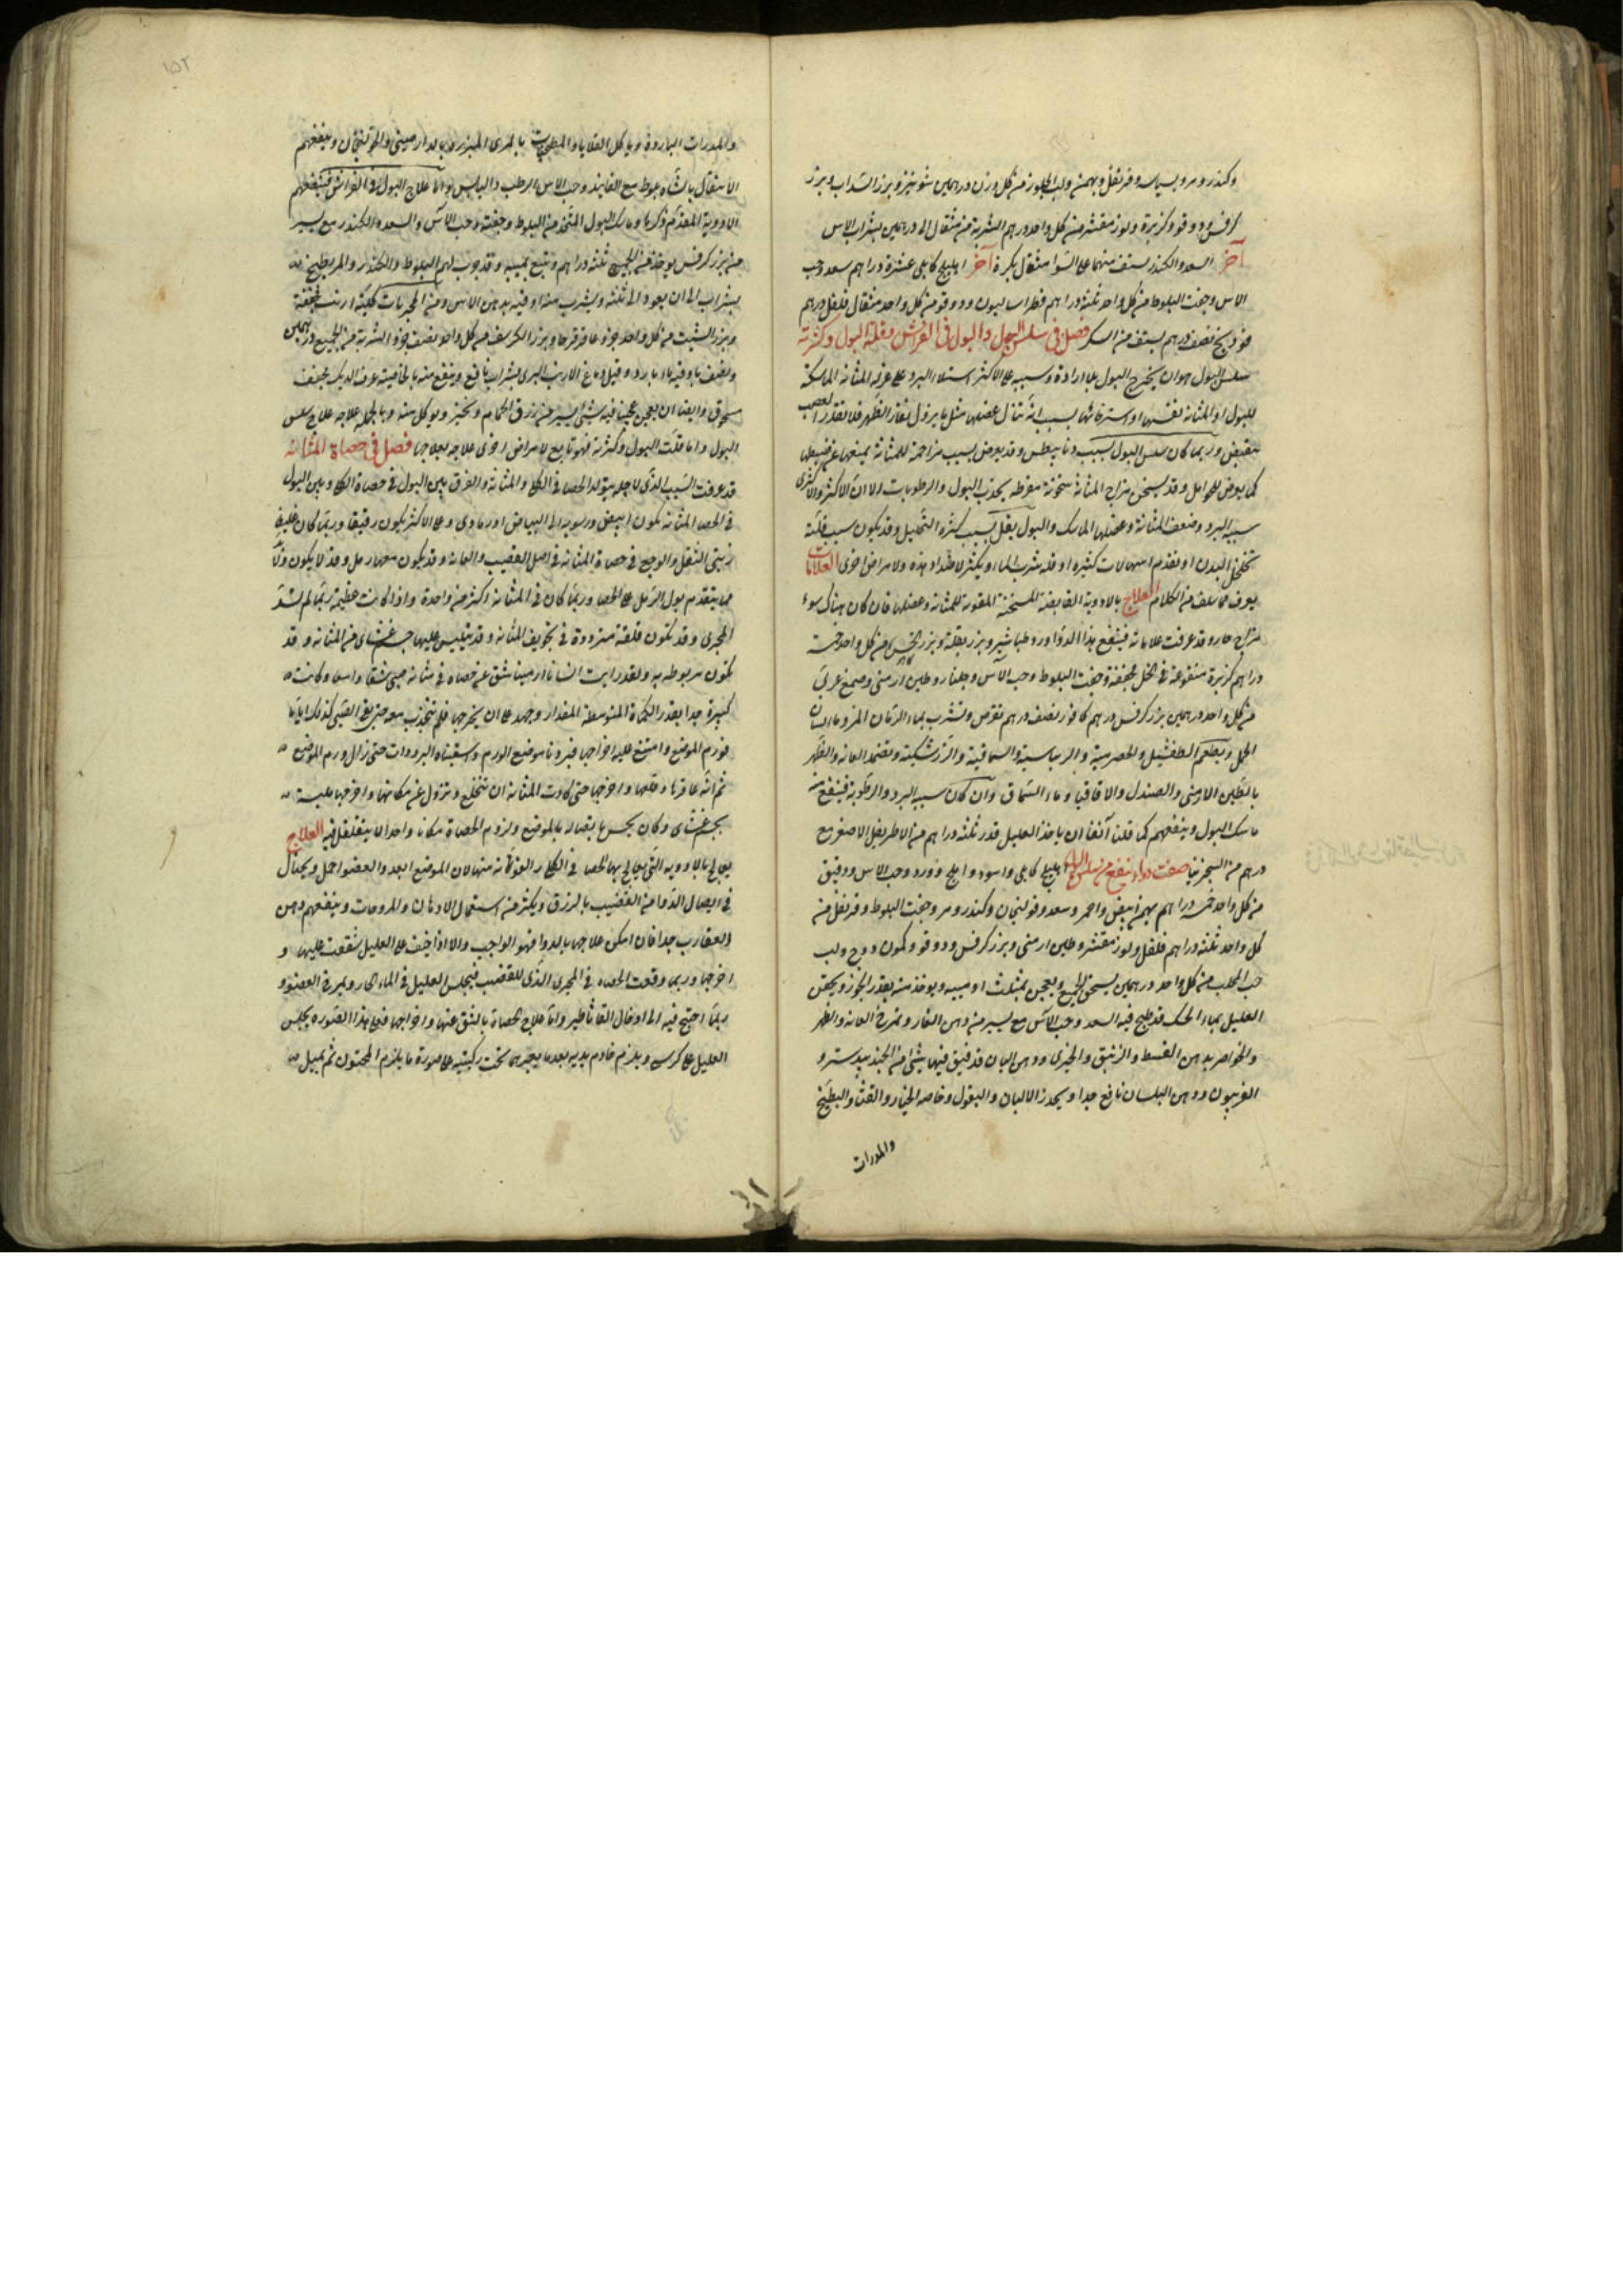 وكندر ومر وبسباسه وقرنفل وبهمن ولب الجلوز من كل وزن درهمين شونيز وبزر السذاب وبزر
كرفس ودوقو وكزبرة ولوز مقشر من كل واحد درهم الشربة من مثقال الى درهمين بشراب الاس
آخر السعد والكندر يستف منهما على السوا مثقال بكرة آخر اهليلج كابلي عشرة دراهم سعد وحب
الاس وجفت البلوط من كل واحد ثلثة دراهم فطراساليون ودوقو من كل واحد مثقال فلفل درهم
فوذنج نصف درهم يستف من السكر فصل في سلس البول والبول في الفراش وقلة البول وكثرته
سلس البول هو ان يخرج البول بلا ارادة وسببه على الاكثر استيلاء البرد على المثانه الماسكة
للبول او المثانه نفسها او استرخائها بسبب آفة تنال عضلها مثل ما يزول لفقار الظهر فلا تقدر العصب
تنقبض وربما كان سلس البول بسبب وقد يعرض بسبب مزاحمة للمثانة يمنعها عن ضبطها
كما يعرض للحوامل وقد يسخن مزاج المثانة سخونة مفرطه يجذب البول والرطوبات الا ان الاكثر والاكثرى
سببه البرد وضعف المثانة وعضلها الماسك والبول يقل بسبب كثرة التحليل وقد يكون سبب قلته
تخلخل البدن او تقدم اسهالات كثيره او قله شرب الماء ويكثر لاضداد هذه ولامراض اخرى العلامات
يعرف مما سلف من الكلام العلاج بالادوية القابضة المسخنة المقوية للمثانة وعضلها فان كان هناك سوء
مزاج حار وقد عرفت علاماته فينفع هذا الدواء ورد طباشير وبزر بقلة وبزر الخس من كل واحد خمسة
دراهم كزبرة منقوعة في الخل مجففة وجفت البلوط وحب الآس وجلنار وطين ارمني وصمغ عربي
من كل واحد درهمين بزر كرفس درهم كافور نصف درهم تقرص وتشرب بماء الرمان المز وماء لسان
الحمل ويطعم الطفشيل والحصرمية والريباسية والسماقية والزرشكية وتضمد العانه والظهر
بالطين الارمني والصندل والاقاقيا وماء السماق وان كان سببه البرد والرطوبة فينفع
ماسك البول وينفعهم كما قلنا آنفا ان ياخذ العليل قدر ثلثة دراهم من الاطريفل الاصغر مع
درهم من السجزنيا صفت دواء ينفع من سلس البول اهليلج كابلي واسود واملج وورد وحب الاس ودقيق
من كل واحد خمسة دراهم بهمن ابيض واحمر وسعد وخولنجان وكندر ومر وجفت البلوط وقرنفل من
كل واحد ثلثة دراهم فلفل ولوز مقشر وطين ارمني وبزر كرفس ودوقو وكمون ووج ولب
حب المحلب من كل واحد درهمين يسحق الجميع ويعجن بمثلث او ميبه ويوخذ منه بقدر الجوز ويحقن
العليل بماء الحسك قد طبخ فيه السعد وحب الآس مع يسير من دهن الغار وتمرخ العانه والظهر
والخواصر بدهن القسط والزنبق والخيرى ودهن البان قد فتق فيها شئ من الجندبيدستر و
الفربيون ودهن البلسان نافع جدا ويحذر الالبان والبقول وخاصه الخيار والقثا والبطيخ
والمدرات
١٥٢
والمدرات الباردة وياكل القلايا والمطجنات بالمرى المبزره بالدارصيني والخولنجان وينفعهم
الانتقال بالشاه بلوط مع الفانيد وحب الاس الرطب واليابس واما علاج البول في الفراش فينفعهم
الادوية المقدم ذكرها وماسك البول المتخذ من البلوط وجفته وحب الآس والسعد والكندر مع يسير
من بزر كرفس يوخذ من الجميع ثلثة دراهم وتتبع بميبه وقد جرب لهم البلوط والكندر والمر يطبخ
بشراب الى ان يعود الى ثلثه ويشرب منه اوقيه بدهن الاس ومن المجربات كلية ارنب مجففة
وبزر الشبت من كل واحد جزء عاقرقرحا وبزر الكرفس من كل واحد نصف جزء الشربة من الجميع درهمين
ونصف باوقيه ماء بارد وقيل دماغ الارنب البرى بشراب نافع وينفع منه بالخاصيه عرف الديك مجفف
مسحوق وايضا ان يعجن عجينا فيه شئ يسير من زرق الحمام ويخبز ويوكل منه وبالجمله علاجه علاج سلس
البول واما قلت البول وكثرته فهو تابع لامراض اخرى علاجه بعلاجها فصل في حصاة المثانه
قد عرفت السبب الذى لاجله يتولد الحصا في الكلى والمثانه والفرق بين البول في حصاة الكلى وبين البول
في الحصا المثانه تكون ابيض ورسوبه الى البياض او رمادى وعلى الاكثر يكون رقيقا وربما كان غليظ
زيتى الثفل والوجع في حصاة المثانه في اصل القضيب والعانه وقد يكون معها رمل وقد لا يكون
مما يتقدم بول الرمل على الحصا وربما كان في المثانه اكثر من واحدة واذا كانت عظيمة ربما لم تسد
المجرى وقد تكون قلقة مترددة في تجويف المثانه وقد يتلبس عليها جسم غشاى من المثانه وقد
تكون مربوطه به ولقد رايت انسانا ارمينا شق عن حصاه في مثانه صبى شقا واسعا وكانت
كبيرة جدا بقدر الكماة المتوسطة المقدار وجهد على ان يخرجها فلم تنجذب معه حتى بقى الصبى كذلك اياما
فورم الموضع وامتنع عليه اخراجها فبردنا موضع الورم وسقيناه المبردات حتى زال ورم الموضع
ثم انه عاقرها وقلبها واخرجها حتى كادت المثانه ان تنخلع وتزول عن مكانها واخرجها ملبسة
بجسم غشاى وكان يحس باتصاله بالموضع ولزوم الحصاة مكانا واحدا لا يتقلقل فيه العلاج
يعالج بالادويه التى يعالج بها الحصا في الكلى القوية منها لان الموضع ابعد والعضو احمل ويحتال
في ايصال الدواء من القضيب بالزرق ويكثر من استعمال الادهان والمروخات وينفعهم دهن
العقارب جدا فان امكن علاجها بالدوا فهو الواجب والا اذا خيف على العليل شققت عليها و
اخرجها وربما وقعت الحصاه في المجرى الذى للقضيب فيجلس العليل في الماء الحار ويمرخ العضو و
ربما احتيج فيه الى ادخال القاثاطير واما علاج الحصاة بالشق عنها واخراجها فعلى هذا الصوره يجلس
العليل على كرسى ويلزم خادم يديه بعد ما يعبرهما تحت ركبتيه على صورة ما يلزم المختون ثم يميل